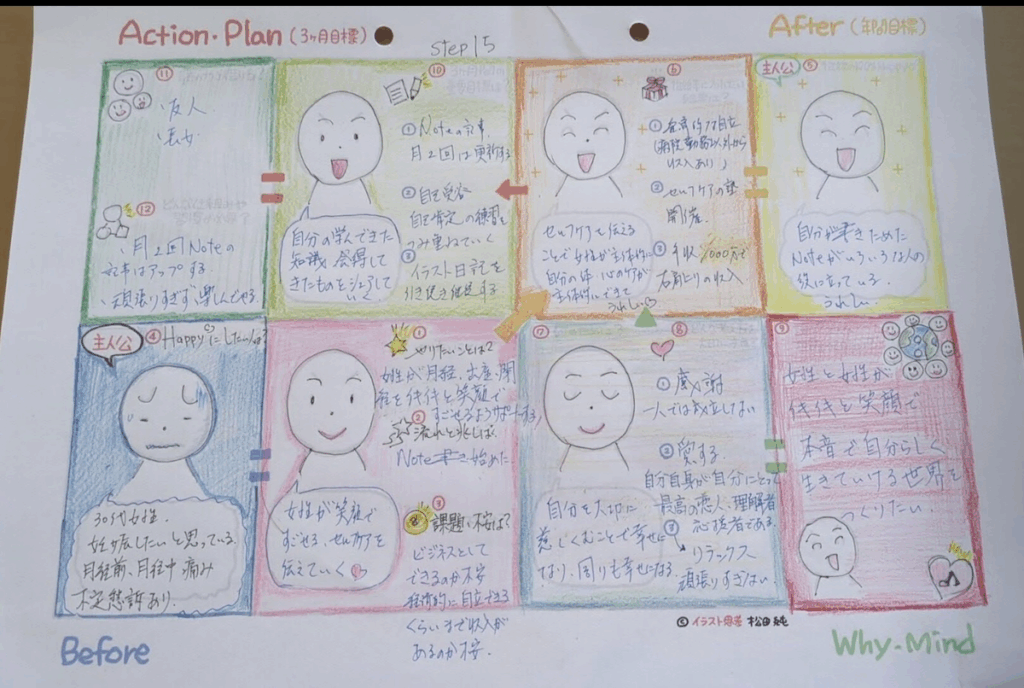 Action・Plan (3ヶ月目標)
Step 15
After (年間目標)
⑪
友人
⑫
月2回Noteの
記事はアップする
頑張りすぎず楽しんでやる
⑩
① Noteの記事
月2回は更新する
② 自己受容
自己肯定の練習を
つみ重ねていく
③ イラスト日記を
引き続き継続する
自分の学んできた
知識、会得して
きたものをシェアして
いく
⑥
② セルフケアの塾
開催
③ 年収1000万で
右肩上りの収入
セルフケアを伝える
ことで女性が主体的に
自分の体、心のケアが
主体的にできて
うれしい♡
主人公
⑤
自分が書きためた
Noteがいろいろな人の
役に立っている。
うれしい
主人公
④ Happyにしたいのは?
30代女性
妊娠したいと思っている
月経前、月経中 痛み
不定愁訴あり
①
やりたいことは?
女性が月経、お産、閉
経を伴伴と笑顔で
すごせるようサポートする
② 流れと兆しは、
Note書き始めた
女性が笑顔で
すごせる、セルフケアを
伝えていく
③
課題・不安は?
ビジネスとして
できるのか不安
経済的に自立できる
くらいまで収入が
あるのか不安
⑦
⑧
① 感謝
一人では成立しない
② 愛する
自分自身が自分にとって
最高の恋人、理解者
応援者である
リラックス
頑張りすぎない
自分を大切に
慈しむことで幸せに
なり、周りも幸せになる
⑨
女性と女性が
伴伴と笑顔で
本音で自分らしく
生きていける世界を
つくりたい
© イラスト思考 松田純
Before
Why・Mind